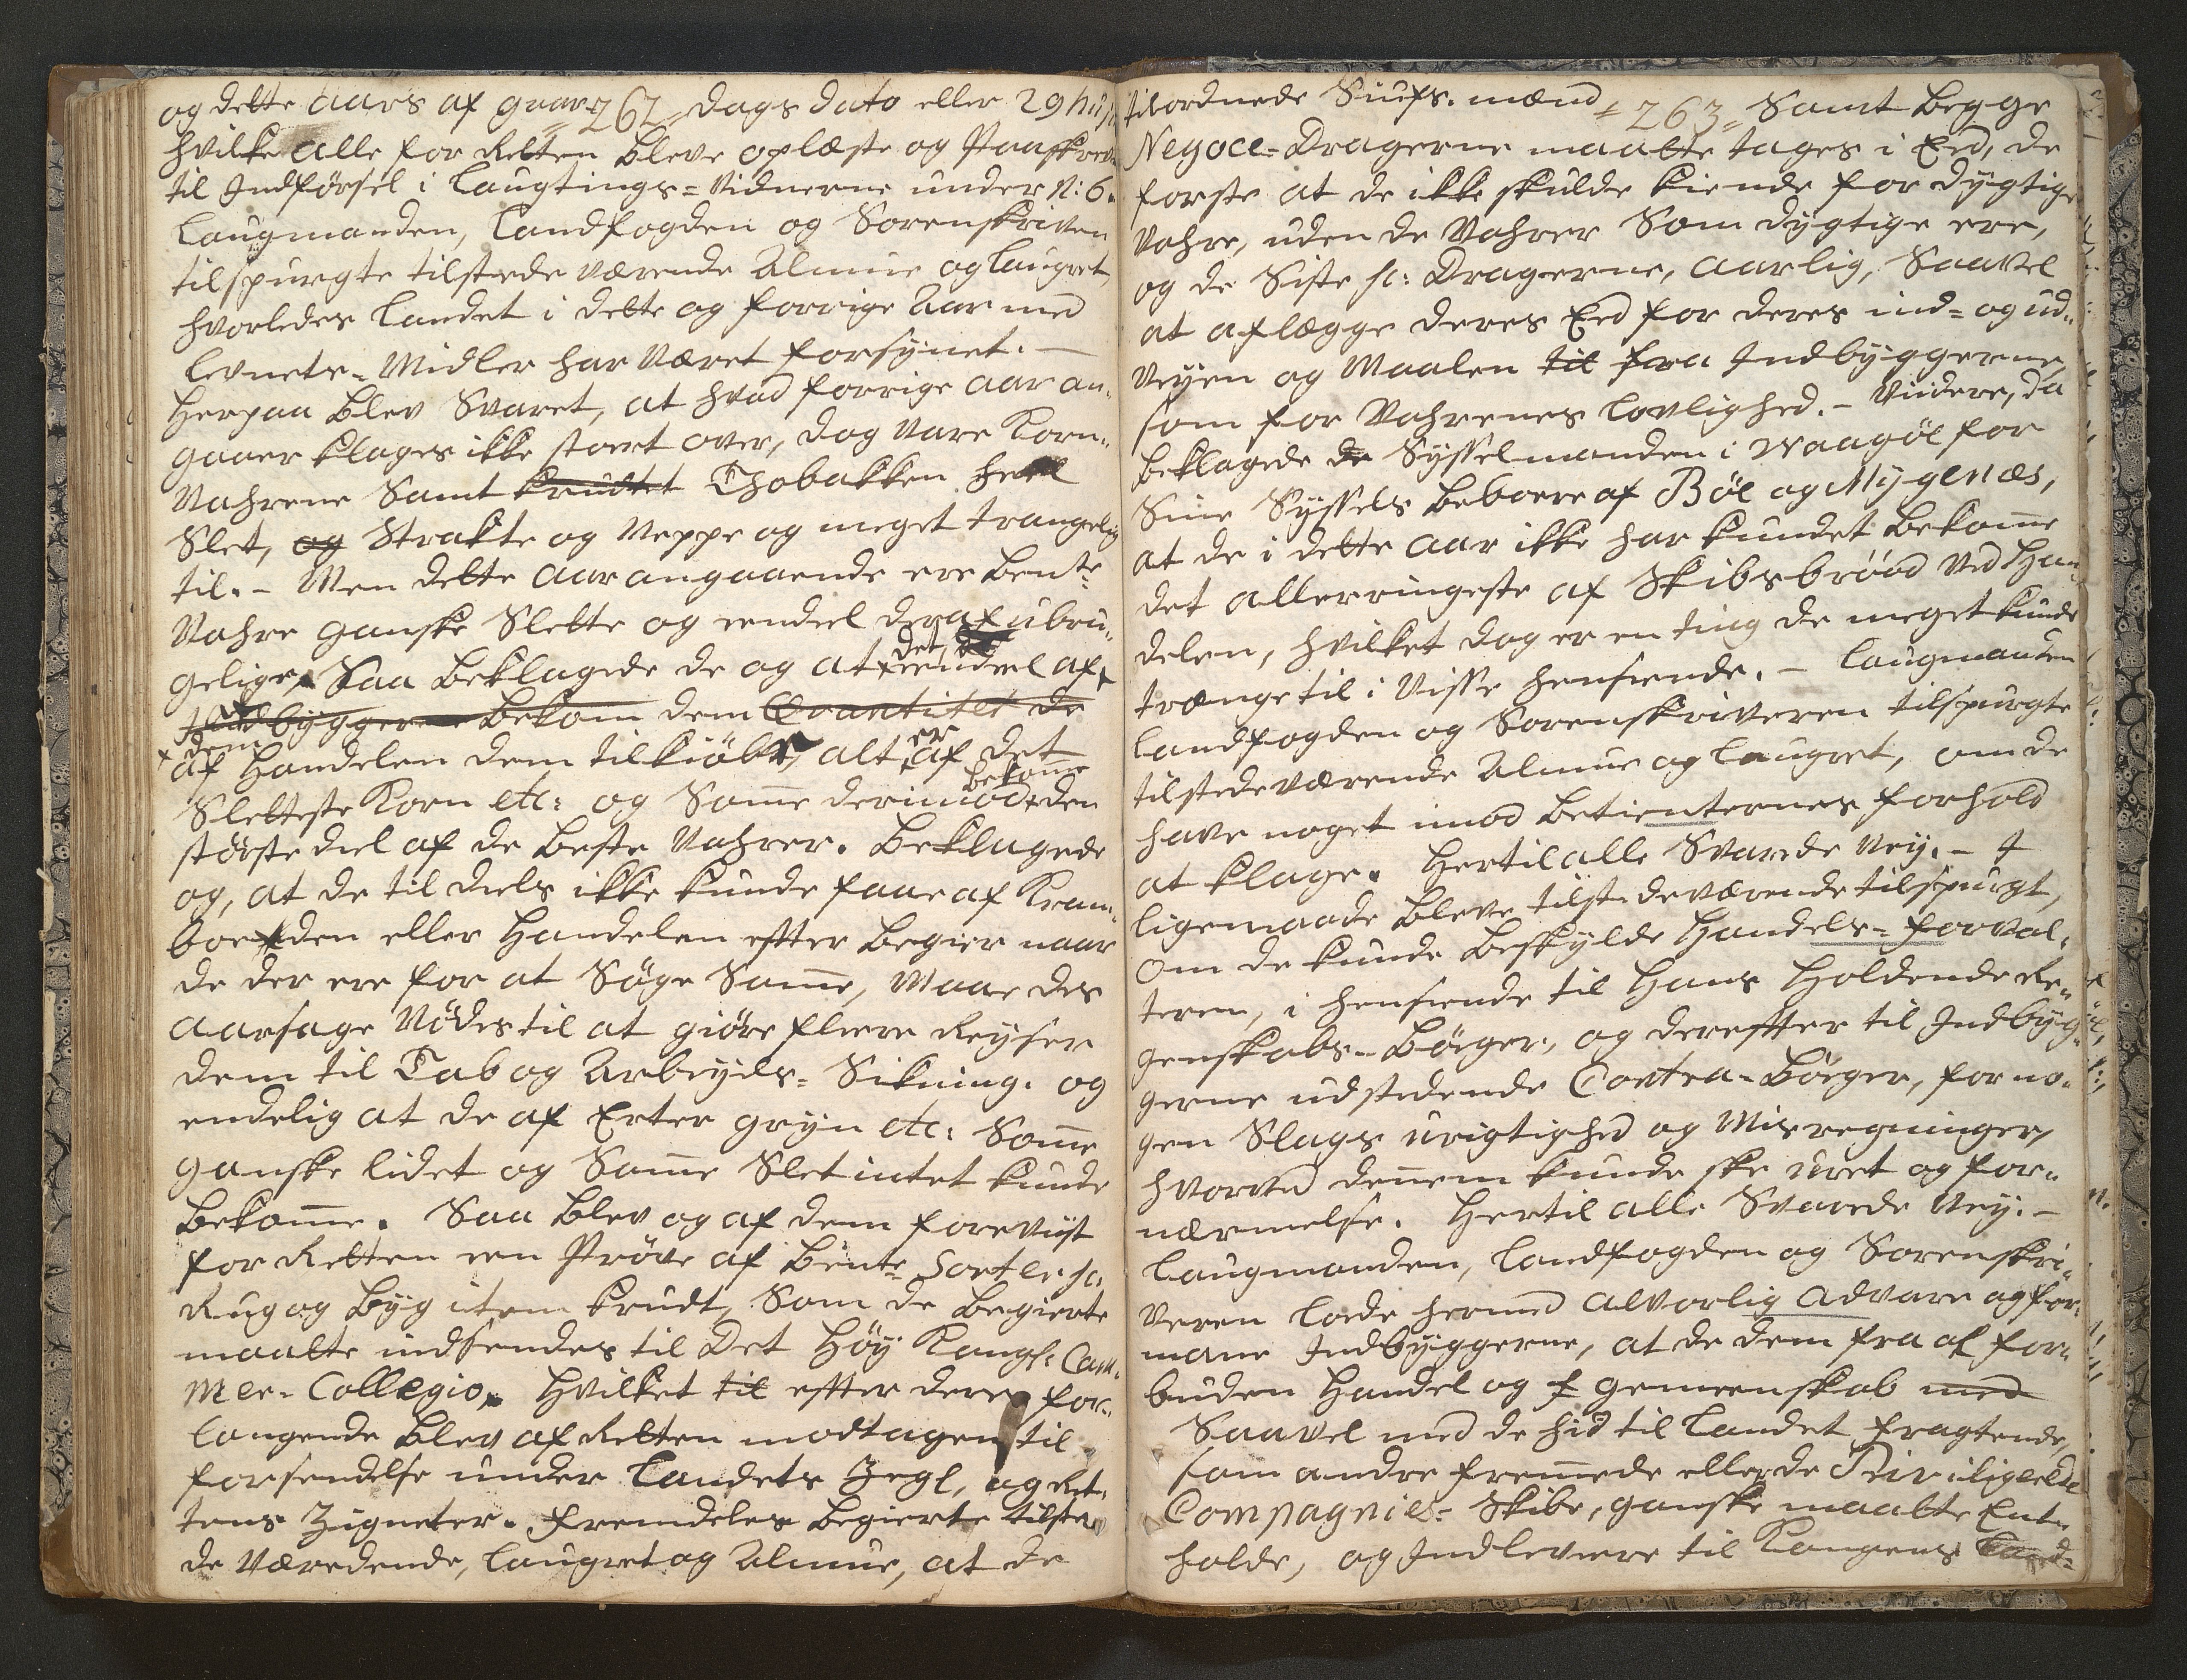 =262=
og dette Aars af gaars dags dato eller 29 huj:
hvilke alle for Retten bleve oplæste og Paaskrevne
til Indførsel i Laugtings-Vidnerne under N: 6.
Laugmanden, Landfogden og Sorenskriveren
tilspurgte tilstede værende Almue og Laugret,
hvorledes Landet i dette og forrige Aar med
Levnets-Midler har været forsynet. —
Herpaa blev Svaret, at hvad forrige Aar an-
gaaer klages ikke stort over, dog vare Korn-
Vahrene Samt krudtet Thobakken heel
Slet, og Strakte og Neppe og meget trangelig
til. - Men dette Aar angaaende ere bente
Vahre ganske Slette og eendeel deraf ubru-
gelige, Saa beklagede de og at det eendeel af
Indbyggerne bekom dem Qvantitet de
dem
af Handelen dem tilkiøbte, alt er af det
Sletteste Korn etc: og Somme derimod bekomme den
største deel af de beste Vahrer. Beklagede
og, at de til deels ikke kunde faae af Kram-
boeden eller Handelen efter begier naar
de der ere for at Søge Samme, Maae des
Aarsage Nødes til at giøre fleere Reyser
dem til Tab og Arbeyds-Sikning. og
endelig at de af Erter gryn etc: Somme
ganske lidet og Somme Slet intet kunde
bekomme. Saa blev og af dem foreviist
for Retten een Prøve af bente Sorter sc:
Rug og Byg item krudt, Som de begierte
maatte indsendes til Det Høy Kongl: Cam-
mer-Collegio, Hvilket til efter deres for-
langende blev af Retten modtagen til
forsendelse under Landets Zegl, og Ret-
tens Zigneter. Fremdeles begierte tilste-
de Værendende, Laugret og Almue, at de
263
tilordnede Siufs. mænd Samt begge
Negoce-Dragerne maatte tages i Eed, de
første at de ikke skulde kiende for dygtige
Vahre, uden de Vahrer Som dygtige ere,
og de Siste sc: Dragerne, aarlig, Saavel
at aflægge deres Eed for deres ind- og ud-
Veyen og Maalen til fra Indbyggerne,
som for Vahrenes Lovlighed. - Viidere, da
beklagede de Sysselmanden i Waagøe for
Sine Syssels beboere af Bøe og Mygenæs,
at de i dette Aar ikke har kundet bekomme
det allerringeste af Skibsbrøød ved Han-
delen, hvilket dog er en ting de meget kunde
trænge til i Visse henseende. - Laugmanden
Landfogden og Sorenskriveren tilspurgte
tilstedeværende Almue og Laugret, om de
have noget imod betienternes forhold
at klage. Hertil alle Svarede Ney. - I
ligemaade bleve tilstedeværende tilspurgt,
Om de kunde beskylde Handels-forval-
teren, i henseende til Hans Holdende Re-
genskabs-Bøger, og derefter til Indbyg-
gerne udstedende Contra-Bøger, for no-
gen Slags urigtighed og Misregninger,
hvorved dennem kunde ske uret og for-
nærmelse. Hertil alle Svarede Ney. -
Laugmanden, Landfogden og Sorenskri-
veren lode hermed alvorlig advare og for-
mane Indbyggerne, at de dem fra al for-
buden Handel og f gemeenskab med
Saavel med de hid til Landet fragtende,
som andre fremmede eller de Priviligerede
Compagnies-Skibe, ganske maatte Ent-
holde, og Indlevere til Kongens Land-